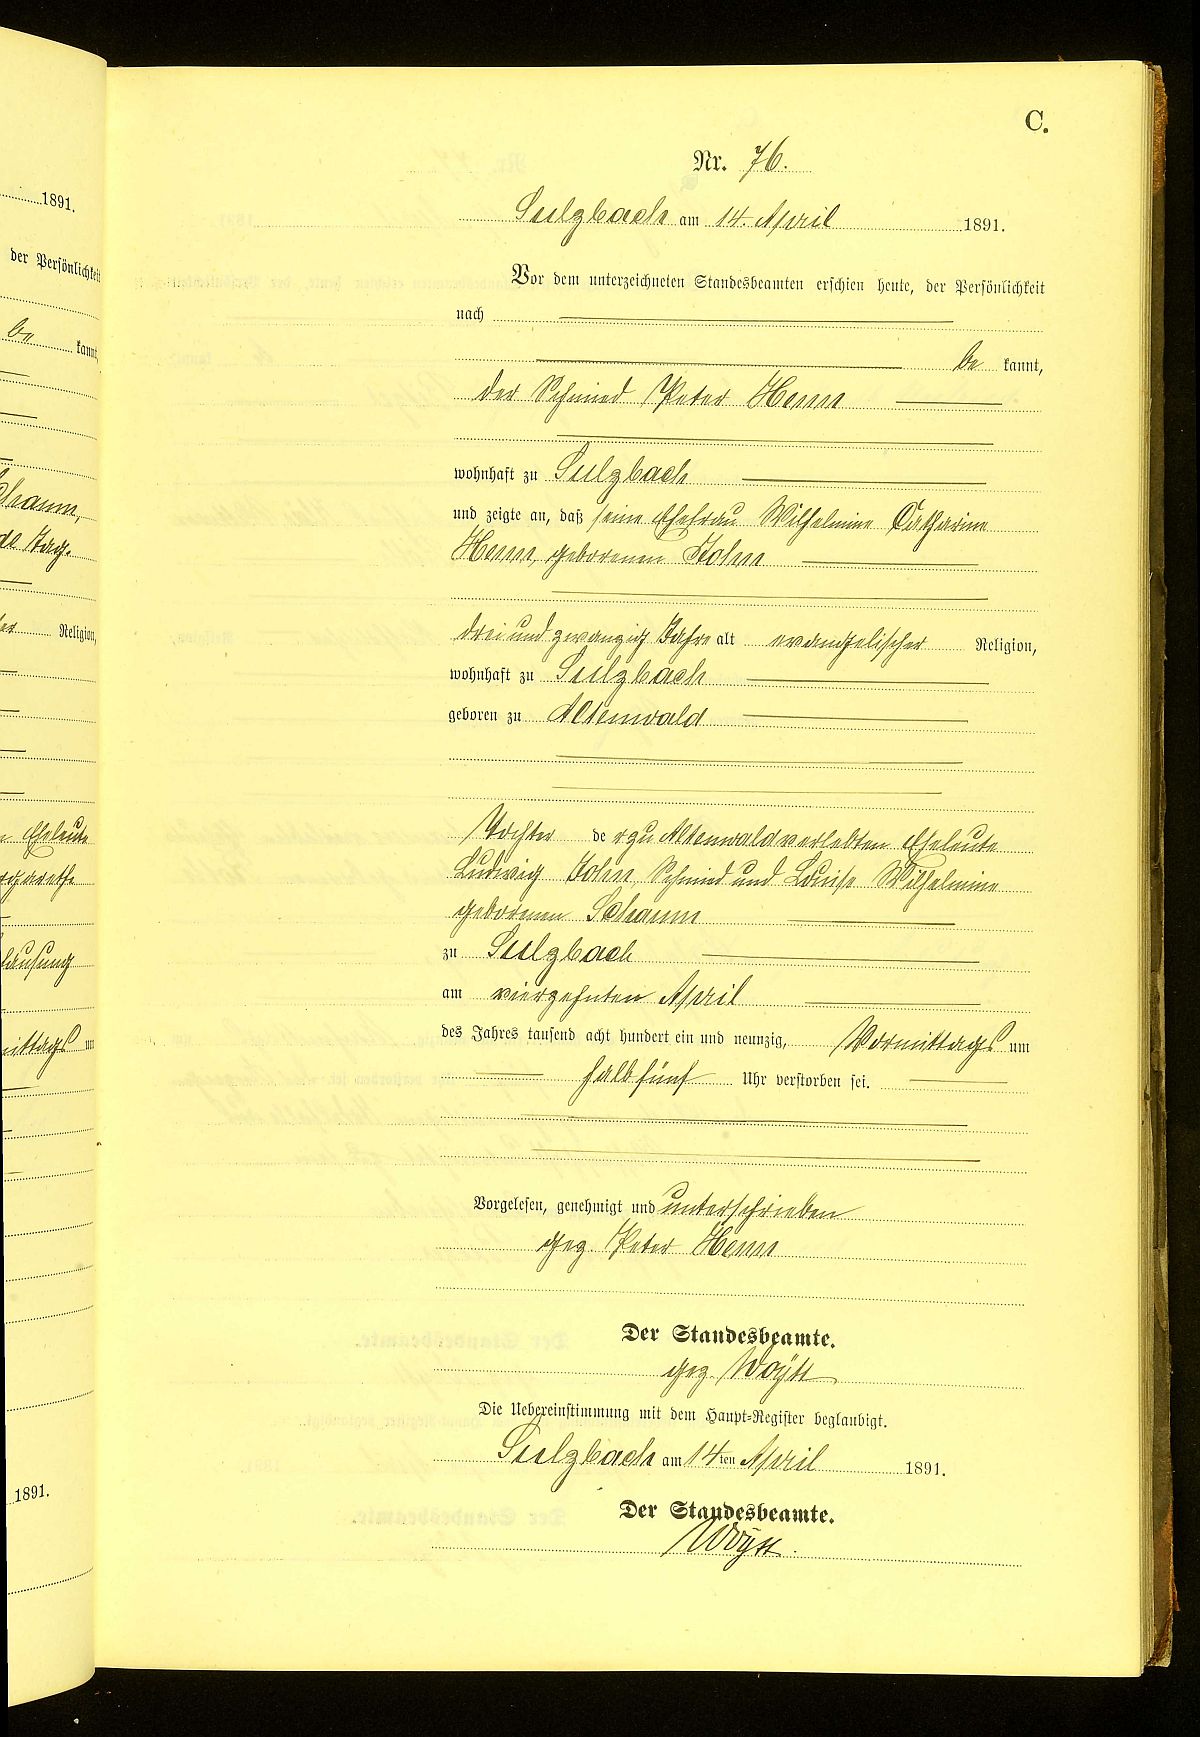 C.
Nr. 76.
Sulzbach am 14. April 1891.
Vor dem unterzeichneten Standesbeamten erschien heute, der Persönlichkeit
nach
be kannt,
der Schmied Peter Henn
wohnhaft zu Sulzbach
und zeigte an, daß seine Ehefrau Wilhelmine Catharine
Henn, geborenen John
drei und zwanzig Jahre alt evangelischer Religion,
wohnhaft zu Sulzbach
geboren zu Altenwald
Tochter der zu Altenwald verlebten Eheleute
Ludwig John, Schmied und Louise Wilhelmine
geborenen Schaum
zu Sulzbach
am vierzehnten April
des Jahres tausend acht hundert ein und neunzig, Vormittags um
halb fünf Uhr verstorben sei.
Vorgelesen, genehmigt und unterschrieben
gez. Peter Henn
Der Standesbeamte.
gez. Woÿtt
Die Uebereinstimmung mit dem Haupt-Register beglaubigt.
Sulzbach am 14ten April 1891.
Der Standesbeamte.
Woÿtt.
1891.
der Persönlichkeit
be kannt,
Religion,
Eheleute
1891.